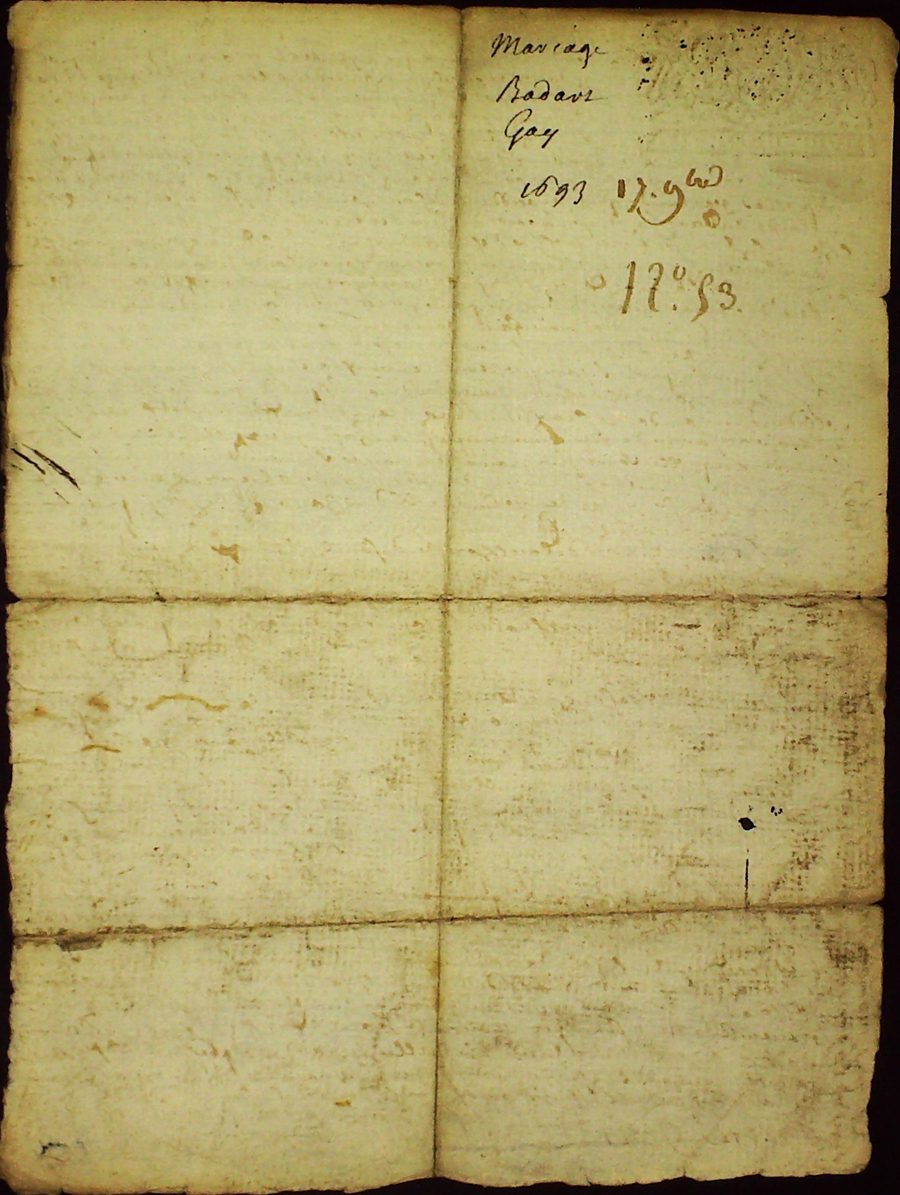 Mariage
Badart
Gay
1693 17. 9bre
N°. 53.